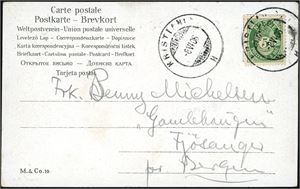 Carte postale
Postkarte – Brevkort
Weltpostverein – Union postale universelle
Levelező Lap – Correspondenzkarte – Dopisnice
Karta korespondencyjna – Korespondenční lístek
Briefkaart – Cartolina postale – Postcard – Brefkort
Открытое письмо – Дописна карта
Tarjeta postal
KRISTIANIA
Frk. Benny Michelsen
"Gamlehaugen"
Fjösanger
pr Bergen
M. & Co. 10